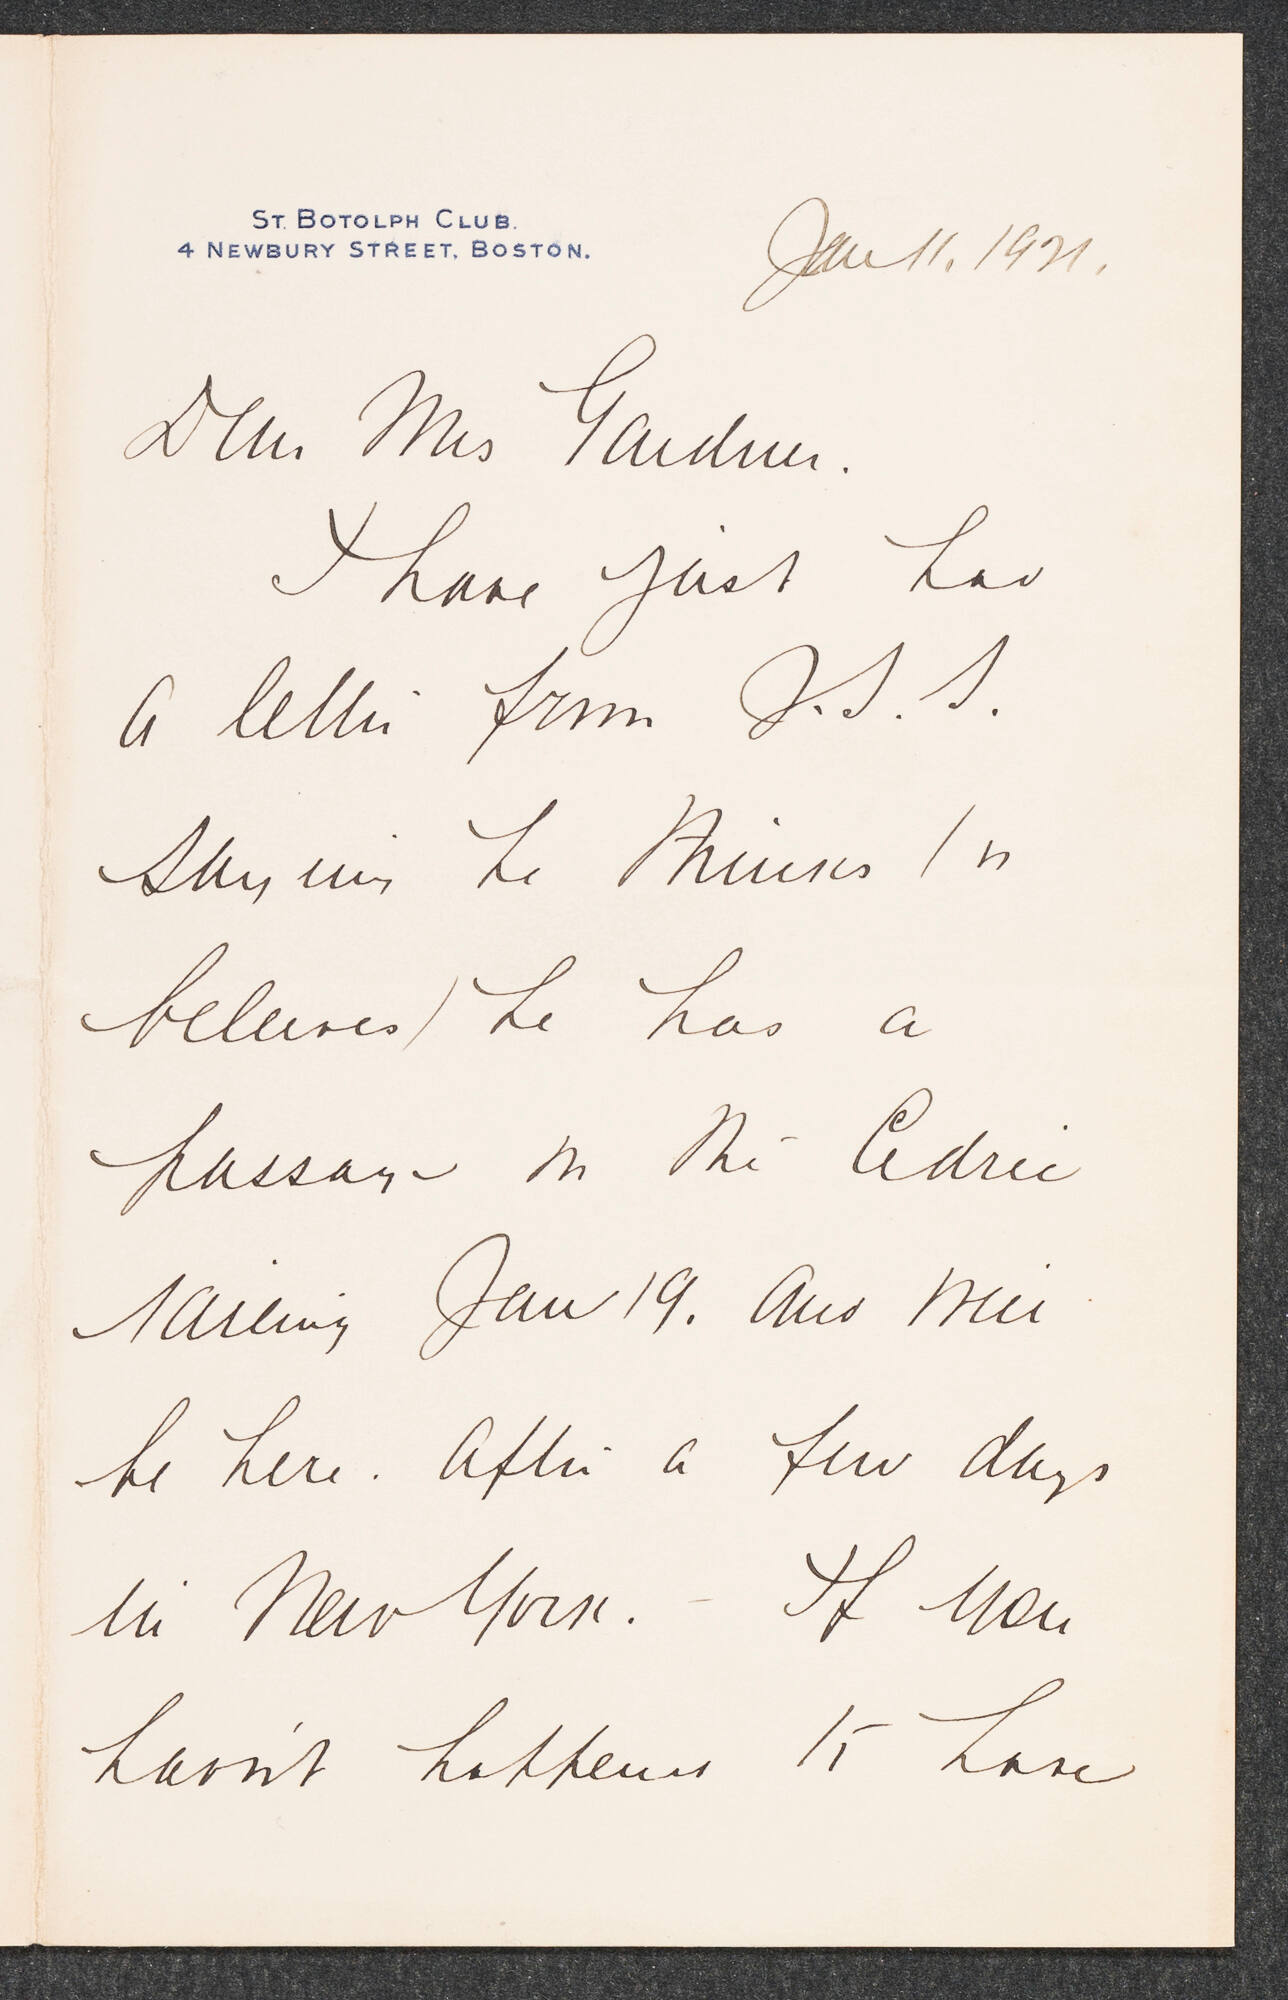 ST. BOTOLPH CLUB.
4 NEWBURY STREET, BOSTON.
Jan 11. 1921.
Dear Mrs Gardner.
I have just had
a letter from J.S.S.
saying he thinks (or
believes) he has a
passage on the Cedric
sailing Jan 19. and will
be here. after a few days
in New York. - If you
havn't happened to have